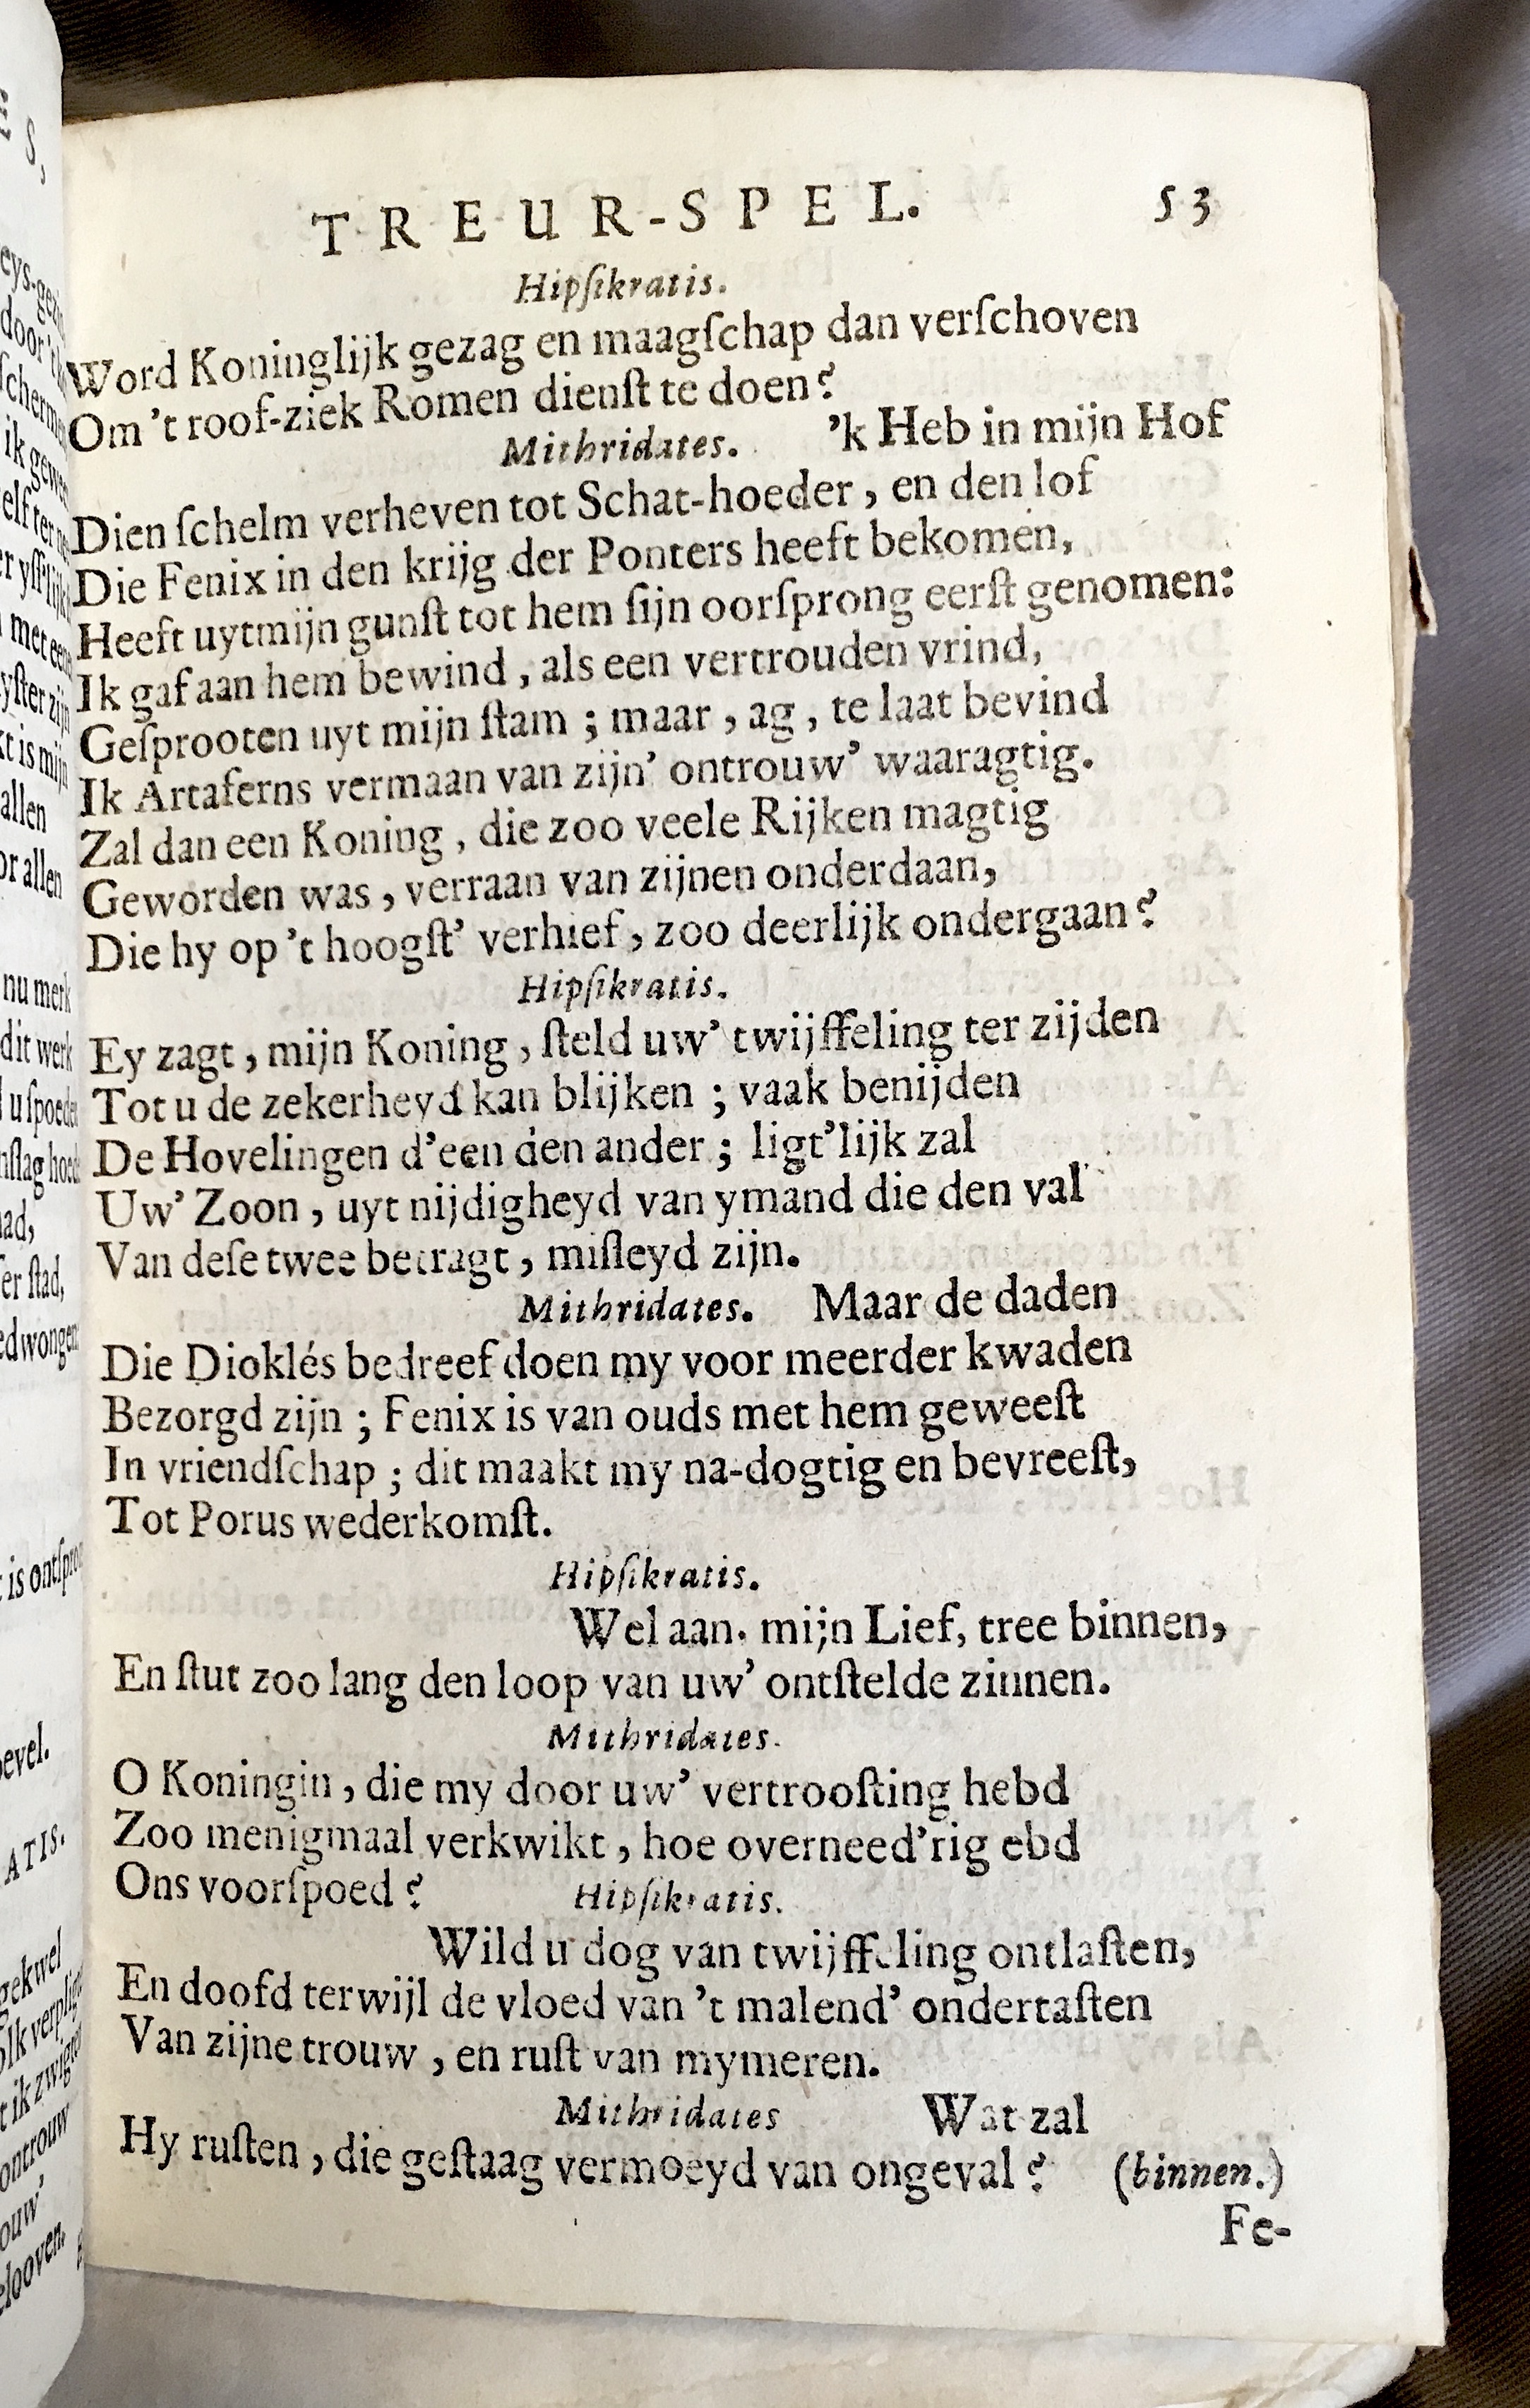 TREUR-SPEL. 53
Hipſikratis.
Word Koninglijk gezag en maagſchap dan verſchoven
Om 't roof-ziek Romen dienſt te doen?
Mithridates. 'k Heb in mijn Hof
Dien ſchelm verheven tot Schat-hoeder, en den lof
Die Fenix in den krijg der Ponters heeft bekomen,
Heeft uyt mijn gunſt tot hem ſijn oorſprong eerſt genomen:
Ik gaf aan hem bewind, als een vertrouden vrind,
Geſprooten uyt mijn ſtam; maar, ag, te laat bevind
Ik Artaferns vermaan van zijn' ontrouw' waaragtig.
Zal dan een Koning, die zoo veele Rijken magtig
Geworden was, verraan van zijnen onderdaan,
Die hy op 't hoogſt' verhief, zoo deerlijk ondergaan?
Hipſikratis.
Ey zagt, mijn Koning, ſteld uw' twijffeling ter zijden
Tot u de zekerheyd kan blijken; vaak benijden
De Hovelingen d'een den ander; ligt'lijk zal
Uw' Zoon, uyt nijdigheyd van ymand die den val
Van deſe twee betragt, miſleyd zijn.
Mithridates. Maar de daden
Die Dioklés bedreef doen my voor meerder kwaden
Bezorgd zijn; Fenix is van ouds met hem geweeſt
In vriendſchap; dit maakt my na-dogtig en bevreeſt,
Tot Porus wederkomſt.
Hipſikratis.
Wel aan, mijn Lief, tree binnen,
En ſtut zoo lang den loop van uw' ontſtelde zinnen.
Mithridates.
O Koningin, die my door uw' vertrooſting hebd
Zoo menigmaal verkwikt, hoe overneed'rig ebd
Ons voorſpoed? Hipſikratis.
Wild u dog van twijffeling ontlaſten,
En doofd terwijl de vloed van 't malend' ondertaſten
Van zijne trouw, en ruſt van mymeren.
Mithridates Wat zal
Hy ruſten, die geſtaag vermoeyd van ongeval? (binnen.)
Fe-